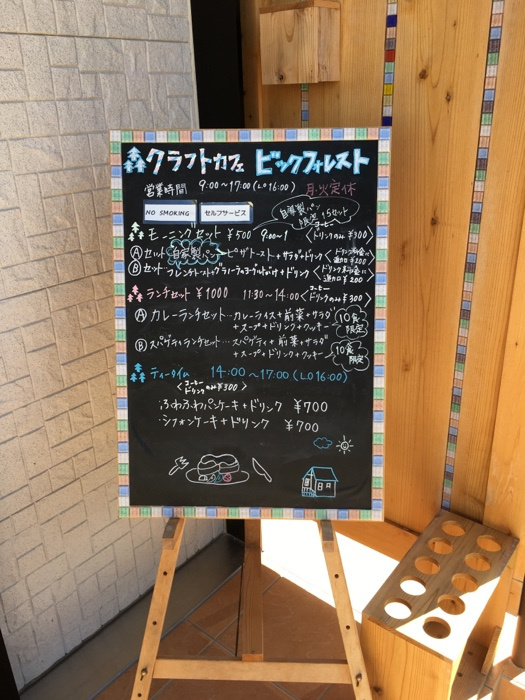 クラフトカフェ ビックフォレスト
営業時間 9:00〜17:00 (LO 16:00) 月・火定休
NO SMOKING セルフサービス
自家製パン 限定15セット
モーニングセット ¥500 9:00〜1 <コーヒー ドリンクのみ ¥300>
Ⓐセット 自家製パン ピザトースト+サラダ+ドリンク
Ⓑセット フレンチトースト+ドリンク ¥200
ランチセット ¥1000 11:30〜14:00 <コーヒー ドリンクのみ ¥300>
Ⓐ カレーランチセット…カレーライス+前菜+サラダ
+スープ+ドリンク+クッキー 10食限定
Ⓑ スパゲティランチセット…スパゲティ+前菜+サラダ
+スープ+ドリンク+クッキー 10食限定
ティータイム 14:00〜17:00 (LO 16:00)
<コーヒー ドリンクのみ ¥300>
ふわふわパンケーキ+ドリンク ¥700
シフォンケーキ+ドリンク ¥700